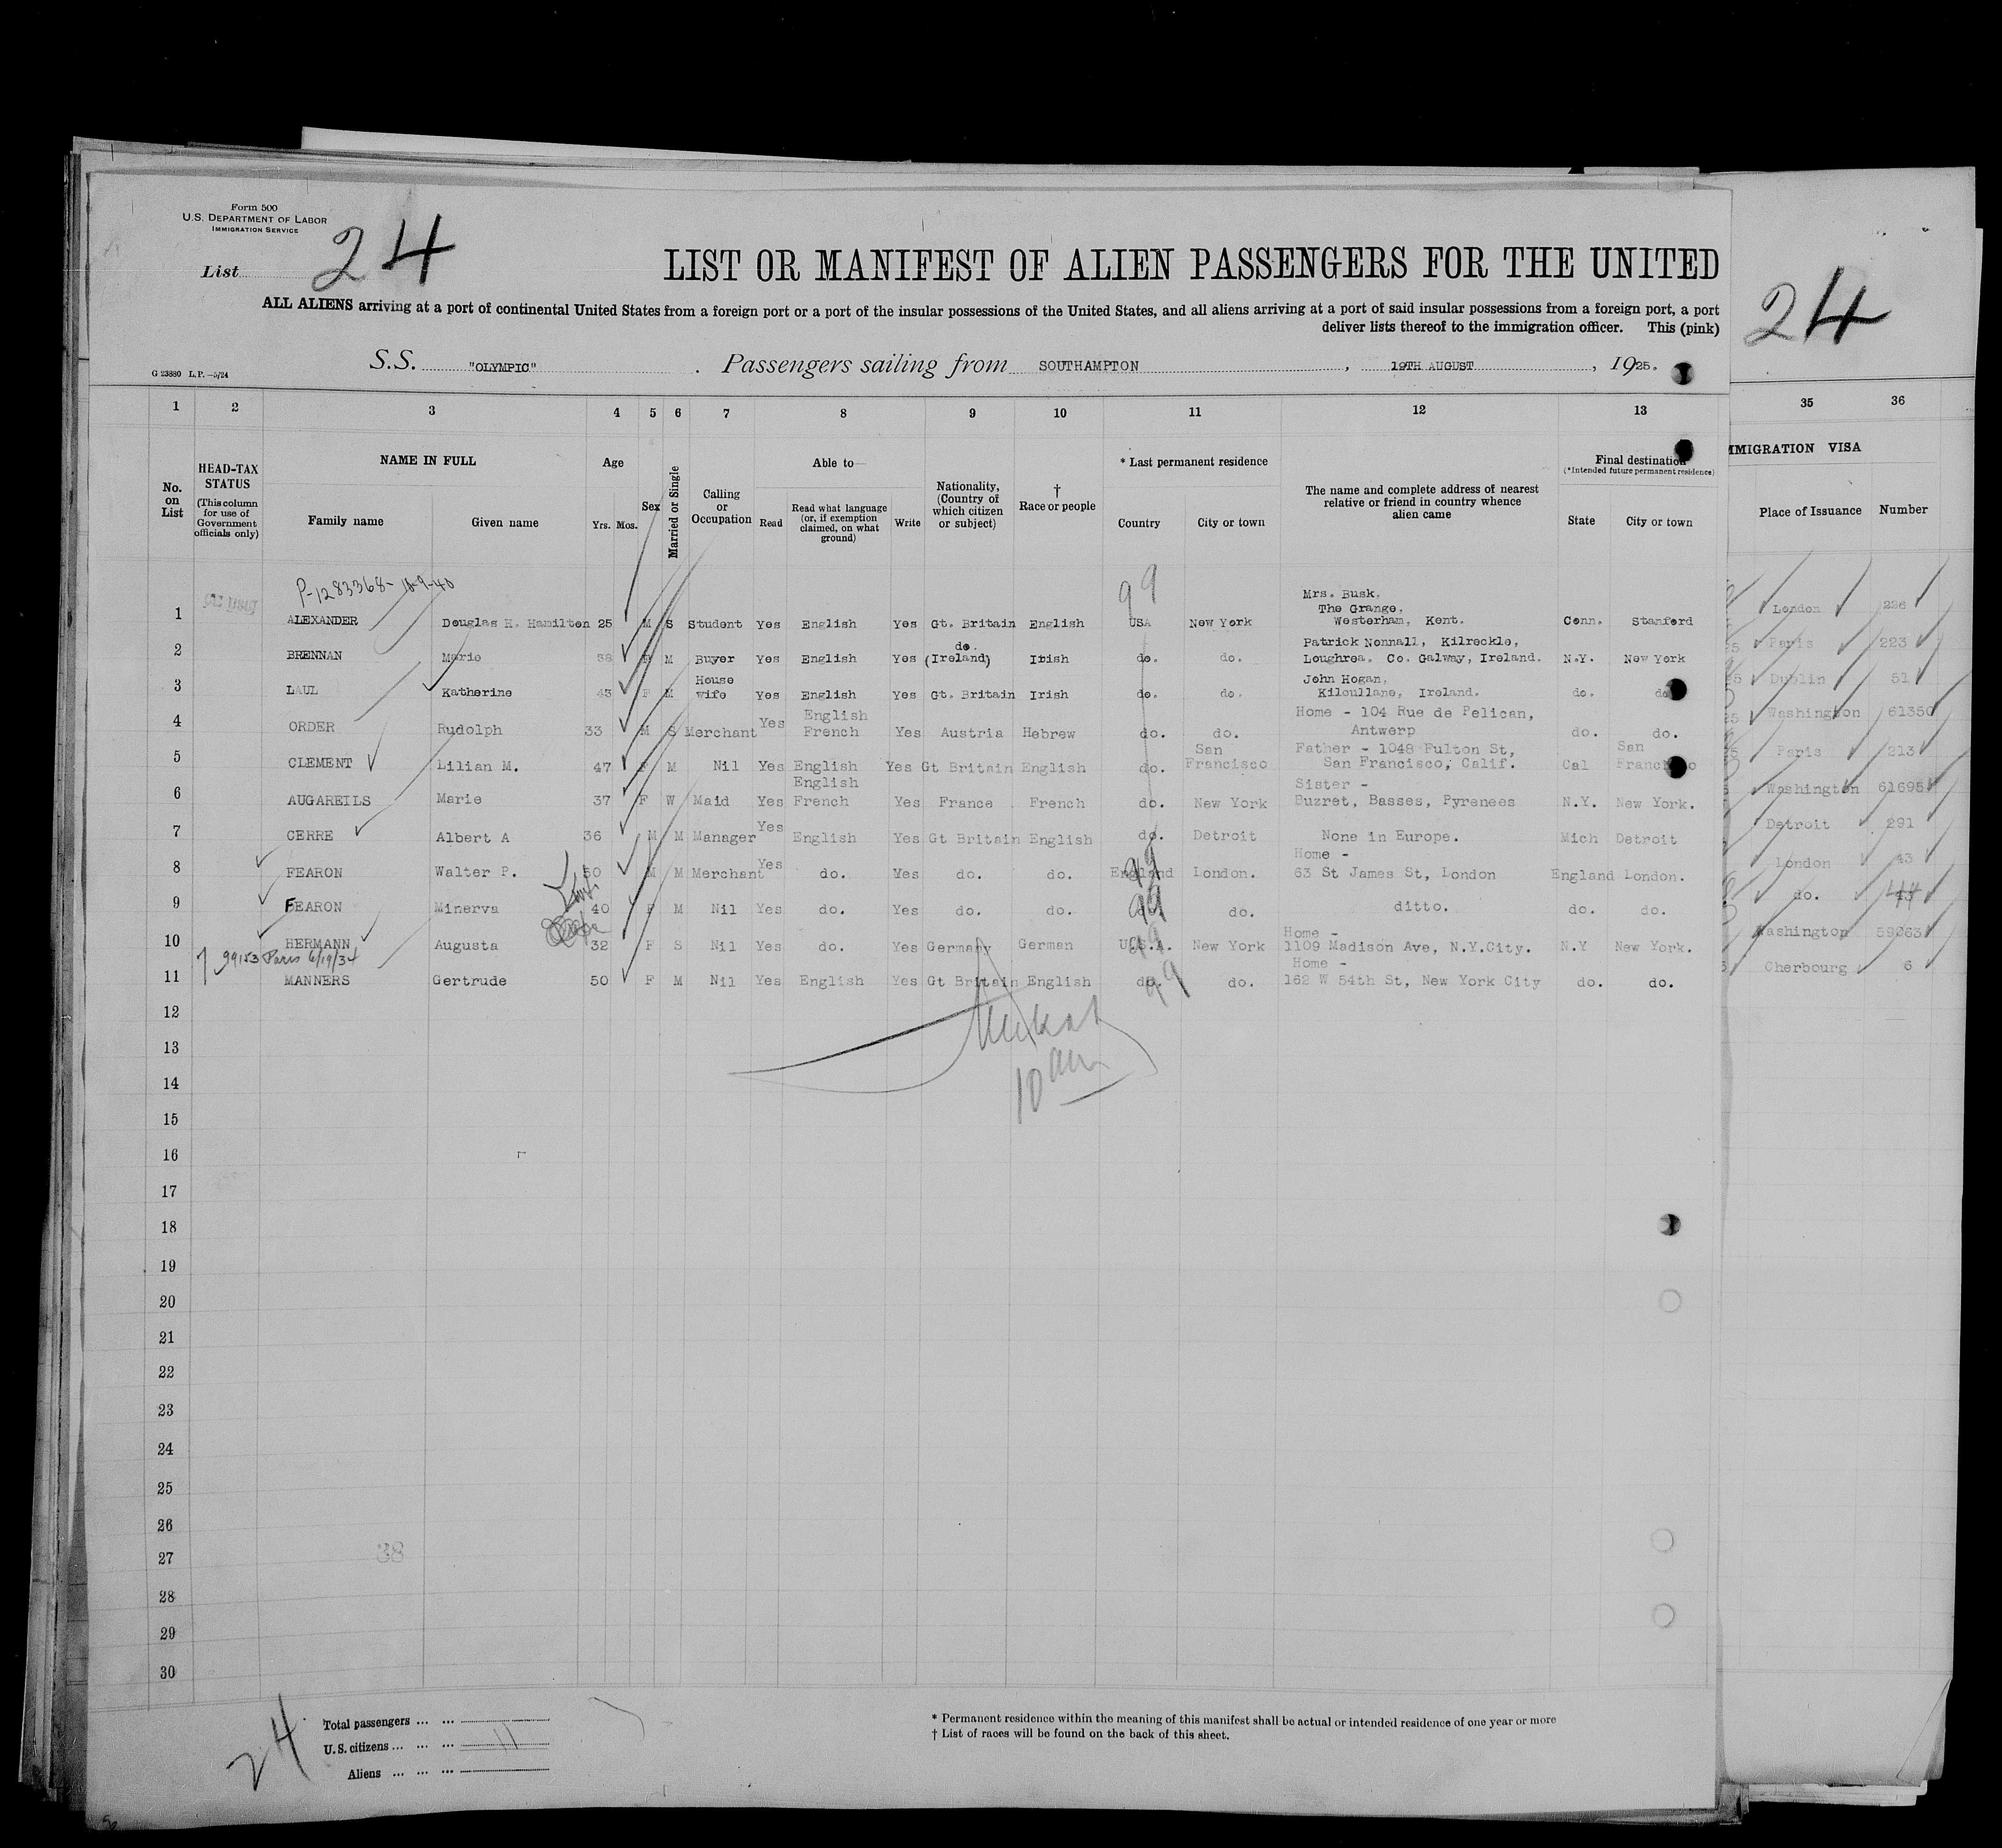 Form 500
U.S. DEPARTMENT OF LABOR
IMMIGRATION SERVICE
List 24
LIST OR MANIFEST OF ALIEN PASSENGERS FOR THE UNITED
ALL ALIENS arriving at a port of continental United States from a foreign port or a port of the insular possessions of the United States, and all aliens arriving at a port of said insular possessions from a foreign port, a port
deliver lists thereof to the immigration officer. This (pink)
24
G 23880 L.P.—5/24
S.S. "OLYMPIC". Passengers sailing from SOUTHAMPTON, 19TH AUGUST, 1925.
1 2 3 4 5 6 7 8 9 10 11 12 13 35 36
No. on List
HEAD-TAX STATUS (This column for use of Government officials only)
NAME IN FULL
Family name Given name
Age
Yrs. Mos.
Sex
Married or Single
Calling or Occupation
Able to—
Read
Read what language (or, if exemption claimed, on what ground)
Write
Nationality, (Country of which citizen or subject)
† Race or people
* Last permanent residence
Country City or town
The name and complete address of nearest relative or friend in country whence alien came
Final destination
(*Intended future permanent residence)
State City or town
MMIGRATION VISA
Place of Issuance Number
P-1283368- 10-9-40
1 ALEXANDER Douglas H. Hamilton 25 M S Student Yes English Yes Gt. Britain English USA New York Mrs. Busk, The Grange, Westerham, Kent. Conn. Stanford London 226
2 BRENNAN Marie 38 F M Buyer Yes English Yes do. (Ireland) Irish do. do. Patrick Nonnall, Kilreckle, Loughrea. Co. Galway, Ireland. N.Y. New York Paris 223
3 LAUL Katherine 43 F M House wife Yes English Yes Gt. Britain Irish do. do. John Hogan, Kilcullane, Ireland. do. do Dublin 51
4 ORDER Rudolph 33 M S Merchant Yes English French Yes Austria Hebrew do. do. Home - 104 Rue de Pelican, Antwerp do. do. Washington 61350
5 CLEMENT Lilian M. 47 F M Nil Yes English Yes Gt Britain English do. San Francisco Father - 1048 Fulton St, San Francisco, Calif. Cal San Francisco Paris 213
6 AUGAREILS Marie 37 F W Maid Yes English French Yes France French do. New York Sister - Buzret, Basses, Pyrenees N.Y. New York. Washington 61695
7 CERRE Albert A 36 M M Manager Yes English Yes Gt Britain English do. Detroit None in Europe. Mich Detroit Detroit 291
8 FEARON Walter P. 50 M M Merchant Yes do. Yes do. do. England London. Home - 63 St James St, London England London. London 43
9 FEARON Minerva 40 F M Nil Yes do. Yes do. do. do. do. ditto. do. do. do. 44
10 HERMANN Augusta 32 F S Nil Yes do. Yes Germany German U.S.A. New York Home - 1109 Madison Ave, N.Y.City. N.Y New York. Washington 59063
99153 Paris 6/19/34
11 MANNERS Gertrude 50 F M Nil Yes English Yes Gt Britain English do. do. Home - 162 W 54th St, New York City do. do. Cherbourg 6
12
13
10 am
14
15
16
17
18
19
20
21
22
23
24
25
26
27
38
28
29
30
24
Total passengers ... ...
U.S. citizens ... ... ... 11
Aliens ... ... ...
* Permanent residence within the meaning of this manifest shall be actual or intended residence of one year or more
† List of races will be found on the back of this sheet.